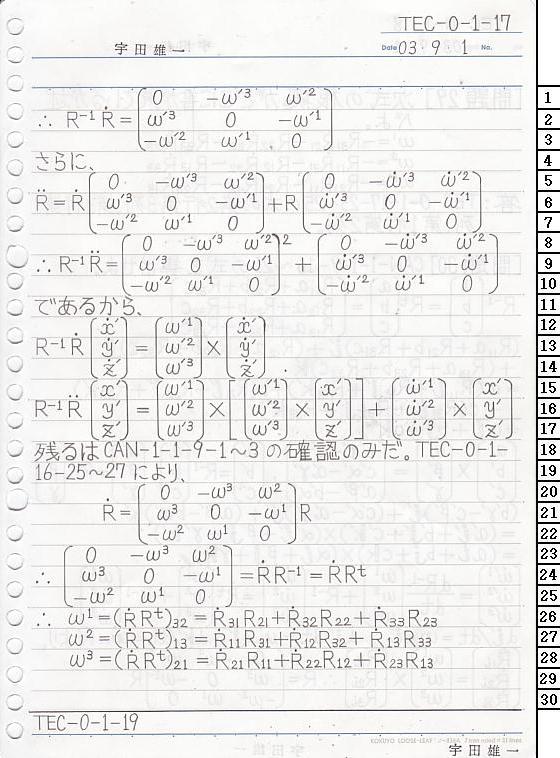 TEC-0-1-17
宇田雄一
Date 03・9・1 No.
∴ R⁻¹Ṙ = ( 0 −ω′³ ω′² ; ω′³ 0 −ω′¹ ; −ω′² ω′¹ 0 )
さらに、
R̈ = Ṙ ( 0 −ω′³ ω′² ; ω′³ 0 −ω′¹ ; −ω′² ω′¹ 0 ) + R ( 0 −ω̇′³ ω̇′² ; ω̇′³ 0 −ω̇′¹ ; −ω̇′² ω̇′¹ 0 )
∴ R⁻¹R̈ = ( 0 −ω′³ ω′² ; ω′³ 0 −ω′¹ ; −ω′² ω′¹ 0 )² + ( 0 −ω̇′³ ω̇′² ; ω̇′³ 0 −ω̇′¹ ; −ω̇′² ω̇′¹ 0 )
であるから、
R⁻¹Ṙ ( ẋ′ ; ẏ′ ; ż′ ) = ( ω′¹ ; ω′² ; ω′³ ) × ( ẋ′ ; ẏ′ ; ż′ ) .
R⁻¹R̈ ( x′ ; y′ ; z′ ) = ( ω′¹ ; ω′² ; ω′³ ) × [ ( ω′¹ ; ω′² ; ω′³ ) × ( x′ ; y′ ; z′ ) ] + ( ω̇′¹ ; ω̇′² ; ω̇′³ ) × ( x′ ; y′ ; z′ )
残るはCAN-1-1-9-1〜3の確認のみだ。TEC-0-1-
16-25〜27により、
Ṙ = ( 0 −ω³ ω² ; ω³ 0 −ω¹ ; −ω² ω¹ 0 ) R
∴ ( 0 −ω³ ω² ; ω³ 0 −ω¹ ; −ω² ω¹ 0 ) = ṘR⁻¹ = ṘRᵗ
∴ ω¹ = (ṘRᵗ)₃₂ = Ṙ₃₁R₂₁+Ṙ₃₂R₂₂+Ṙ₃₃R₂₃
ω² = (ṘRᵗ)₁₃ = Ṙ₁₁R₃₁+Ṙ₁₂R₃₂+Ṙ₁₃R₃₃
ω³ = (ṘRᵗ)₂₁ = Ṙ₂₁R₁₁+Ṙ₂₂R₁₂+Ṙ₂₃R₁₃
TEC-0-1-19
KOKUYO LOOSE-LEAF
宇田雄一
1
2
3
4
5
6
7
8
9
10
11
12
13
14
15
16
17
18
19
20
21
22
23
24
25
26
27
28
29
30